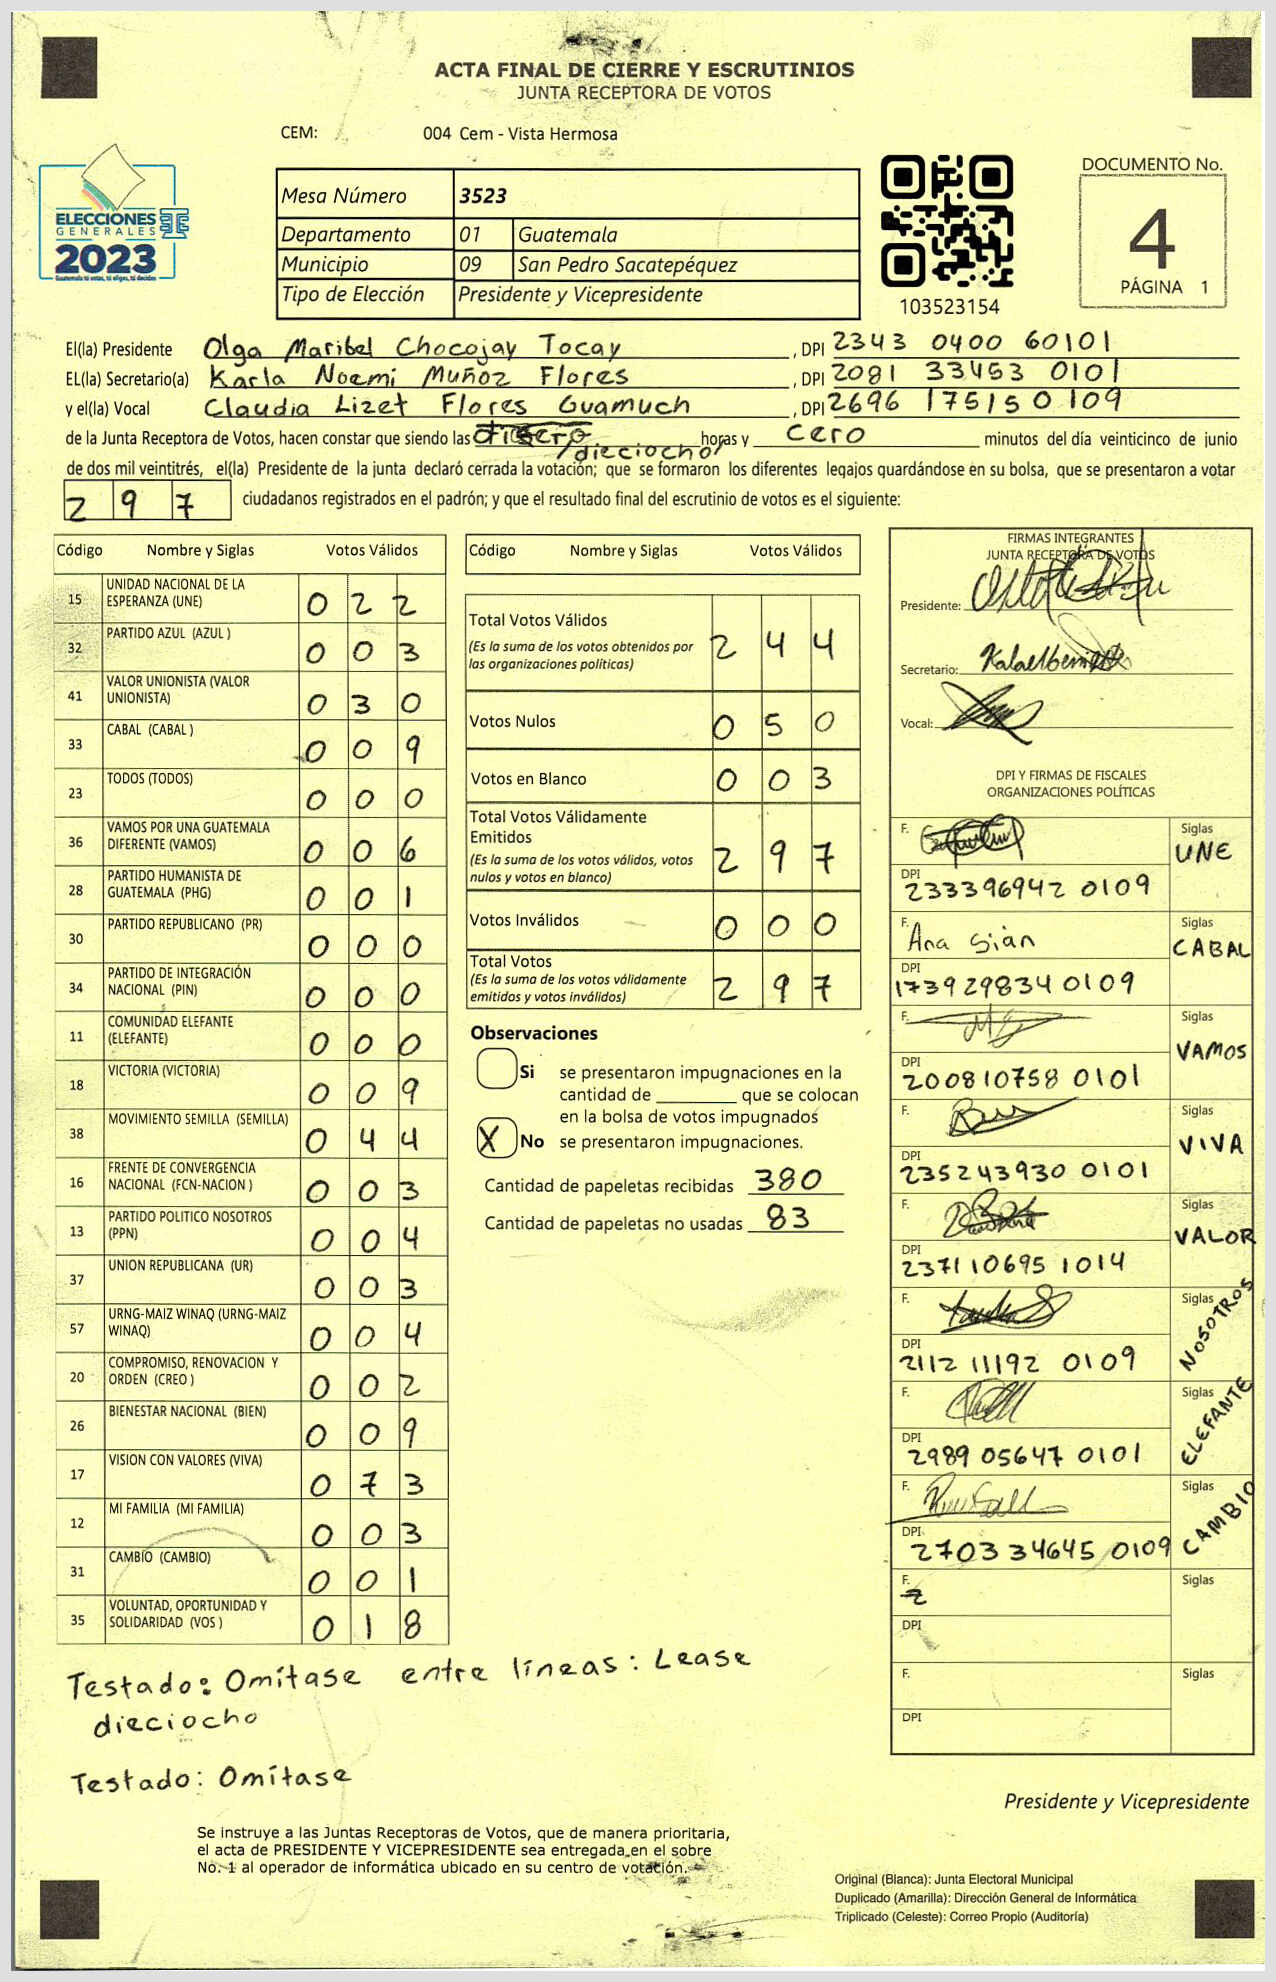 ACTA FINAL DE CIERRE Y ESCRUTINIOS
JUNTA RECEPTORA DE VOTOS
CEM: 004 Cem - Vista Hermosa
ELECCIONES
GENERALES
2023
Guatemala tú votas, tú eliges, tú decides
Mesa Número 3523
Departamento 01 Guatemala
Municipio 09 San Pedro Sacatepéquez
Tipo de Elección Presidente y Vicepresidente
103523154
DOCUMENTO No.
4
PÁGINA 1
El(la) Presidente Olga Maribel Chocojay Tocay , DPI 2343 0400 60101
EL(la) Secretario(a) Karla Noemi Muñoz Flores , DPI 2081 33453 0101
y el(la) Vocal Claudia Lizet Flores Guamuch , DPI 2696 175150 109
de la Junta Receptora de Votos, hacen constar que siendo las dieciocho horas y cero minutos del día veinticinco de junio
de dos mil veintitrés, el(la) Presidente de la junta declaró cerrada la votación; que se formaron los diferentes legajos quardándose en su bolsa, que se presentaron a votar
2 9 7 ciudadanos registrados en el padrón; y que el resultado final del escrutinio de votos es el siguiente:
Código Nombre y Siglas Votos Válidos
15 UNIDAD NACIONAL DE LA ESPERANZA (UNE) 0 2 2
32 PARTIDO AZUL (AZUL ) 0 0 3
41 VALOR UNIONISTA (VALOR UNIONISTA) 0 3 0
33 CABAL (CABAL ) 0 0 9
23 TODOS (TODOS) 0 0 0
36 VAMOS POR UNA GUATEMALA DIFERENTE (VAMOS) 0 0 6
28 PARTIDO HUMANISTA DE GUATEMALA (PHG) 0 0 1
30 PARTIDO REPUBLICANO (PR) 0 0 0
34 PARTIDO DE INTEGRACIÓN NACIONAL (PIN) 0 0 0
11 COMUNIDAD ELEFANTE (ELEFANTE) 0 0 0
18 VICTORIA (VICTORIA) 0 0 9
38 MOVIMIENTO SEMILLA (SEMILLA) 0 4 4
16 FRENTE DE CONVERGENCIA NACIONAL (FCN-NACION ) 0 0 3
13 PARTIDO POLITICO NOSOTROS (PPN) 0 0 4
37 UNION REPUBLICANA (UR) 0 0 3
57 URNG-MAIZ WINAQ (URNG-MAIZ WINAQ) 0 0 4
20 COMPROMISO, RENOVACION Y ORDEN (CREO ) 0 0 2
26 BIENESTAR NACIONAL (BIEN) 0 0 9
17 VISION CON VALORES (VIVA) 0 7 3
12 MI FAMILIA (MI FAMILIA) 0 0 3
31 CAMBIO (CAMBIO) 0 0 1
35 VOLUNTAD, OPORTUNIDAD Y SOLIDARIDAD (VOS ) 0 1 8
Código Nombre y Siglas Votos Válidos
Total Votos Válidos 2 4 4
(Es la suma de los votos obtenidos por
las organizaciones políticas)
Votos Nulos 0 5 0
Votos en Blanco 0 0 3
Total Votos Válidamente
Emitidos 2 9 7
(Es la suma de los votos válidos, votos
nulos y votos en blanco)
Votos Inválidos 0 0 0
Total Votos 2 9 7
(Es la suma de los votos válidamente
emitidos y votos inválidos)
Observaciones
Si se presentaron impugnaciones en la
cantidad de ________ que se colocan
en la bolsa de votos impugnados
X No se presentaron impugnaciones.
Cantidad de papeletas recibidas 380
Cantidad de papeletas no usadas 83
FIRMAS INTEGRANTES
JUNTA RECEPTORA DE VOTOS
Presidente:
Secretario:
Vocal:
DPI Y FIRMAS DE FISCALES
ORGANIZACIONES POLÍTICAS
F. Siglas UNE
DPI 233396942 0109
F. Ana Sián Siglas CABAL
DPI 173929834 0109
F. Siglas VAMOS
DPI 200810758 0101
F. Siglas VIVA
DPI 235243930 0101
F. Siglas VALOR
DPI 237110695 1014
F. Siglas NOSOTROS
DPI 2112 11192 0109
F. Siglas ELEFANTE
DPI 2989 05647 0101
F. Siglas CAMBIO
DPI 2703 34645 0109
F. Siglas
DPI
F. Siglas
DPI
Testado: Omítase entre líneas: Lease
dieciocho
Testado: Omítase
Presidente y Vicepresidente
Se instruye a las Juntas Receptoras de Votos, que de manera prioritaria,
el acta de PRESIDENTE Y VICEPRESIDENTE sea entregada en el sobre
No. 1 al operador de informática ubicado en su centro de votación.
Original (Blanca): Junta Electoral Municipal
Duplicado (Amarilla): Dirección General de Informática
Triplicado (Celeste): Correo Propio (Auditoría)